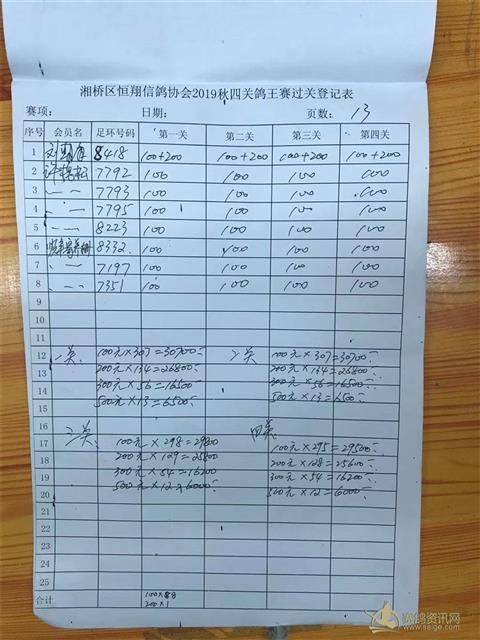 湘桥区恒翔信鸽协会2019秋四关鸽王赛过关登记表
赛项: 日期: 页数: 13
序号 会员名 足环号码 第一关 第二关 第三关 第四关
1 8418 100+200 100+200 100+200 100+200
2 7792 100 100 100 000
3 〃 〃 7793 100 100 100 000
4 〃 7795 100 100 100 100
5 〃 〃 8223 100 100 100 100
6 8332. 100 100 100 100
7 〃 〃 7197 100 100 100 100
8 〃 〃 7351 100 100 100 100
9
10
11
12 一关: 100元×307=30700 二关 100元×307=30700
13 200元×134=26800 200元×134=26800
14 300元×56=16500 300元×56=16500
15 500元×13=6500 500元×13=6500
16
17 三关: 100元×298=29800 四关: 100元×295=29500
18 200元×129=25800 200元×128=25600
19 300元×54=16200 300元×54=16200
20 500元×12×6000 500元×12=6000
21
22
23
24
25
合计 100×88
200×1
赛鸽资讯网
www.saige.com